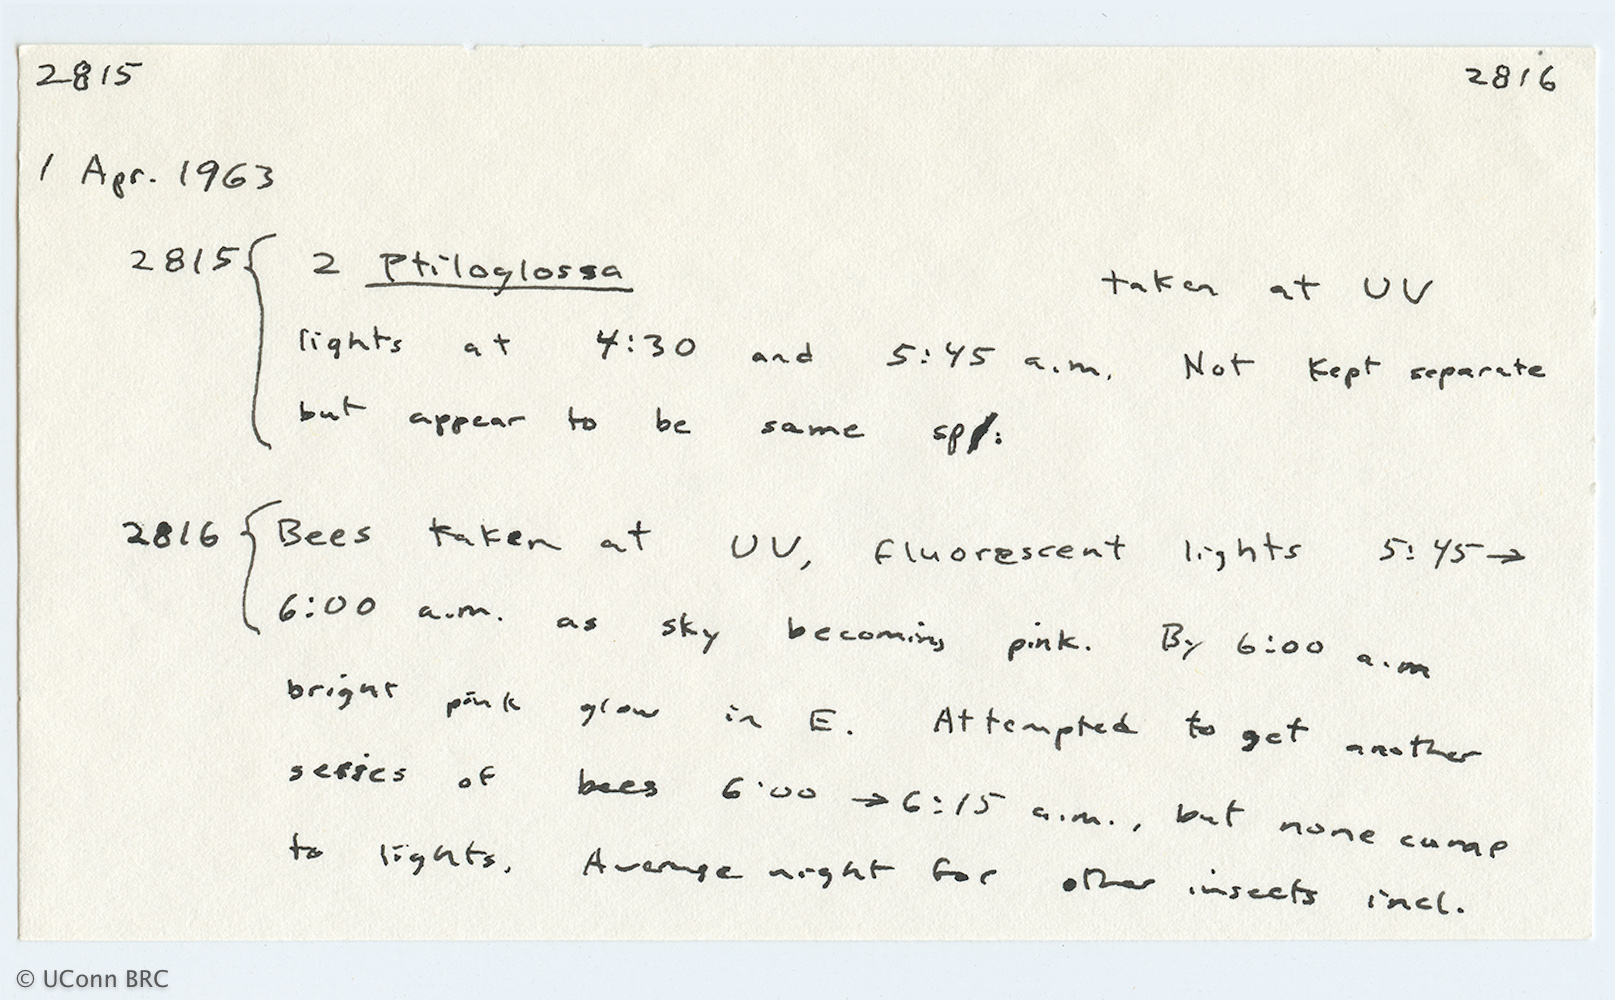 2815 2816
1 Apr. 1963
2815 { 2 Ptiloglossa taken at UV
lights at 4:30 and 5:45 a.m. Not kept separate
but appear to be same sp.
2816 { Bees taken at UV, fluorescent lights 5:45→
6:00 a.m. as sky becoming pink. By 6:00 a.m
bright pink glow in E. Attempted to get another
series of bees 6:00 → 6:15 a.m., but none came
to lights. Average night for other insects incl.
© UConn BRC